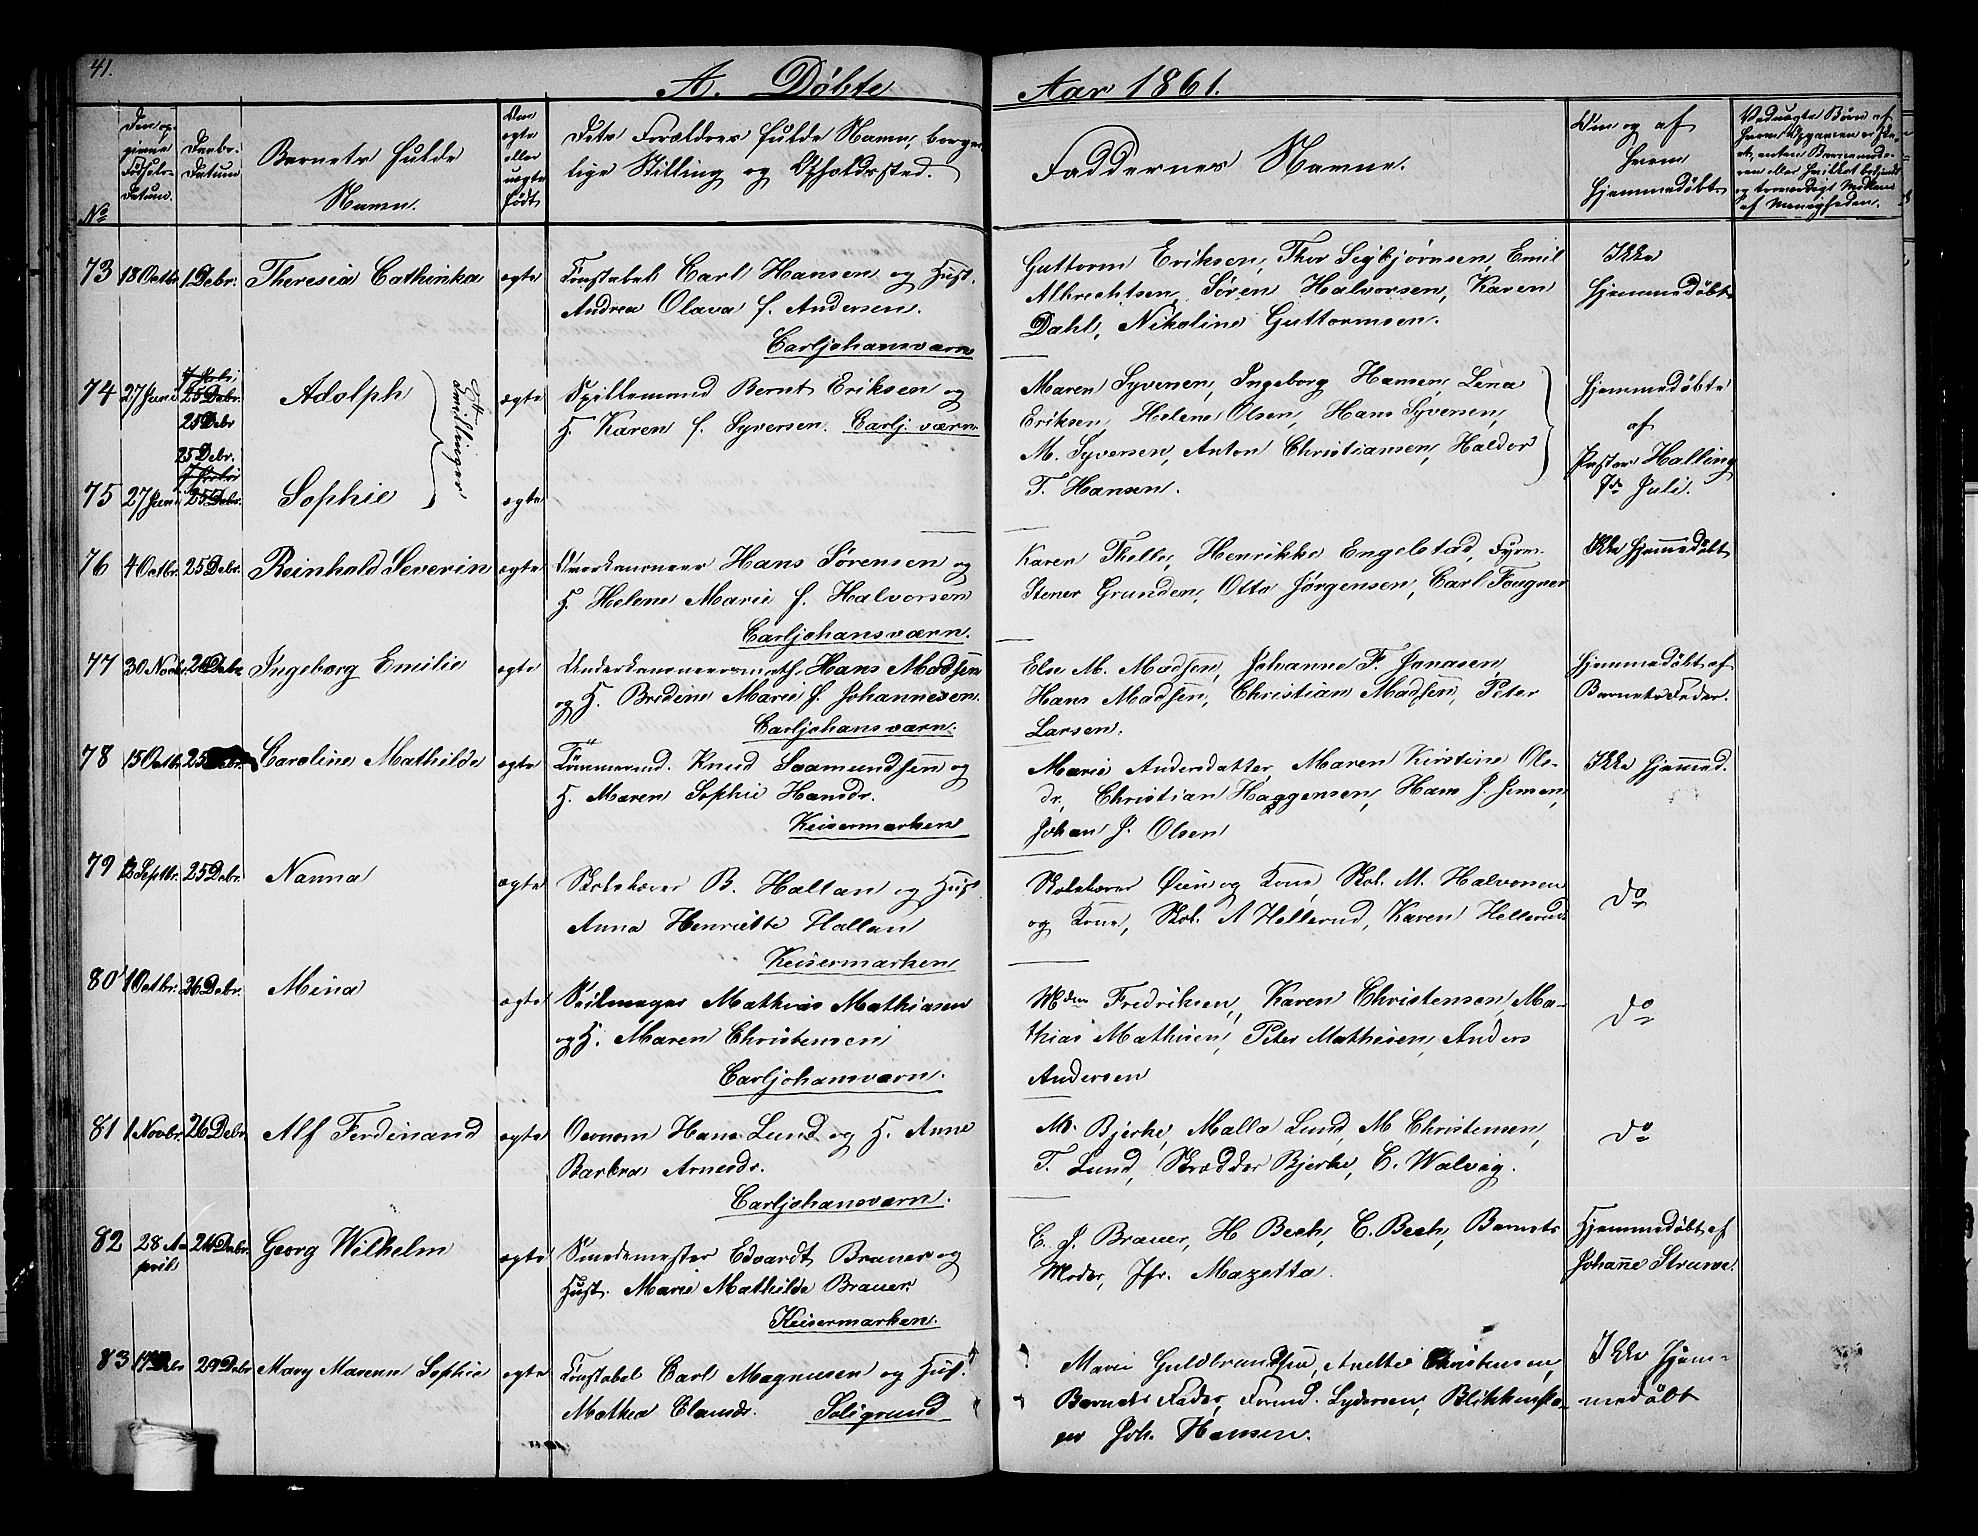 41.
A. Døbte
Aar 1861.
No
Den op-
givne
Fødsels-
Datum.
Daabs-
Datum
Barnets fulde
Navn.
Om
ægte
eller
uægte
født
Dets Forældres fulde Navne, borger-
lige Stilling og Opholdssted.
Faddernes Navne.
Om og af
hvem
hjemmedøbt
73 18 Octbr. 1 Debr. Theresia Cathinka ægte Constabel Carl Hansen og Hust.
Andrea Olava f. Andersen.
Carljohansværn
Guttorm Eriksen, Thor Sigbjørnsen, Emil
Albrechtsen, Søren Halvorsen, Karen
Dahl, Nikoline Guttormsen.
Ikke
hjemmedøbt
74 27 Juni 25 Debr. Adolph ægte Spillemand Bernt Eriksen og
25 Debr
H. Karen f. Syversen. Carlj. værn
Tvillinger
Maren Syversen, Ingeborg Hansen, Lina
Eriksen, Helene Olsen, Hans Syversen,
M. Syversen, Anton Christiansen, Haldor
T. Hansen.
Hjemmedøbte
af
Pastor Halling
7de Juli.
25 Debr.
75 27 Juni 25 Debr. Sophie ægte
76 4 Octbr. 25 Debr. Reinhold Severin ægte Overkanoneer Hans Sørensen og
H. Helene Marie f. Halvorsen
Carljohansværn.
Karen Thelle, Henrikke Engelstad, Fyrm.
Stener Grunden, Otto Jørgensen, Carl Fougner
Ikke hjemmedøbt
77 30 Novbr. 26 Debr Ingeborg Emilie ægte Underkanoneersmath. Hans Madsen
og H. Bredine Marie f. Johannesen.
Carljohansværn.
Else M. Madsen, Johanne F. Jonasen,
Hans Madsen, Christian Madsen, Peter
Larsen.
Hjemmedøbt af
Barnets Fader.
78 15 Octbr. 25 Debr. Caroline Mathilde ægte Tømmermd. Knud Saamundsen og
H. Maren Sophie Hansdr.
Keisermarken
Marie Andersdatter, Maren Kirstine Ols-
dr., Christian Haggensen, Hans J. Jensen,
Johan J. Olsen
Ikke hjemmed.
79 12 Septbr. 25 Debr. Nanna ægte Skolelærer B. Hallan og Hust
Anna Henriette Hallan
Keisermarken
Skolelærer Øien og Kone, Skol. M. Halvorsen
og Kone, Skol. A Hellerud, Karen Hellerud
do
80 1 Octbr. 26 Debr. Mina ægte Seilmager Mathias Mathiasen
og H. Maren Christensen
Carljohansværn.
Mdm Fredriksen, Karen Christensen, Ma-
thias Mathisen, Peter Mathisen, Anders
Andersen
do
81 1 Novbr. 26 Debr Alf Ferdinand ægte Oernom Hans Lund og H. Anne
Barbra Arnesdr.
Carljohansværn.
M. Bjerke, Malla Lund, M Christensen,
T. Lund, Skrædder Bjerke, C. Walvig.
do
82 28 A-
pril. 26 Debr. Georg Wilhelm ægte Smedemester Edvardt Brauer og
Hust. Marie Mathilde Brauer.
Keisermarken.
E. J. Brauer, H Bech, C. Bech, Barnets
Moder, Jfr. Mazetta.
Hjemmedøbt af
Johanne Struwe.
83 29 Debr Mary Marenn Sophie ægte Constabel Carl Magnusen og Hust.
Mathea Clausdr. Soligrund
Marie Guldbrandsen, Anette Christensen,
Barnets Fader, Frmd. Lydersen, Blikkensla-
ger Joh. Hansen.
Ikke hjem-
medøbt